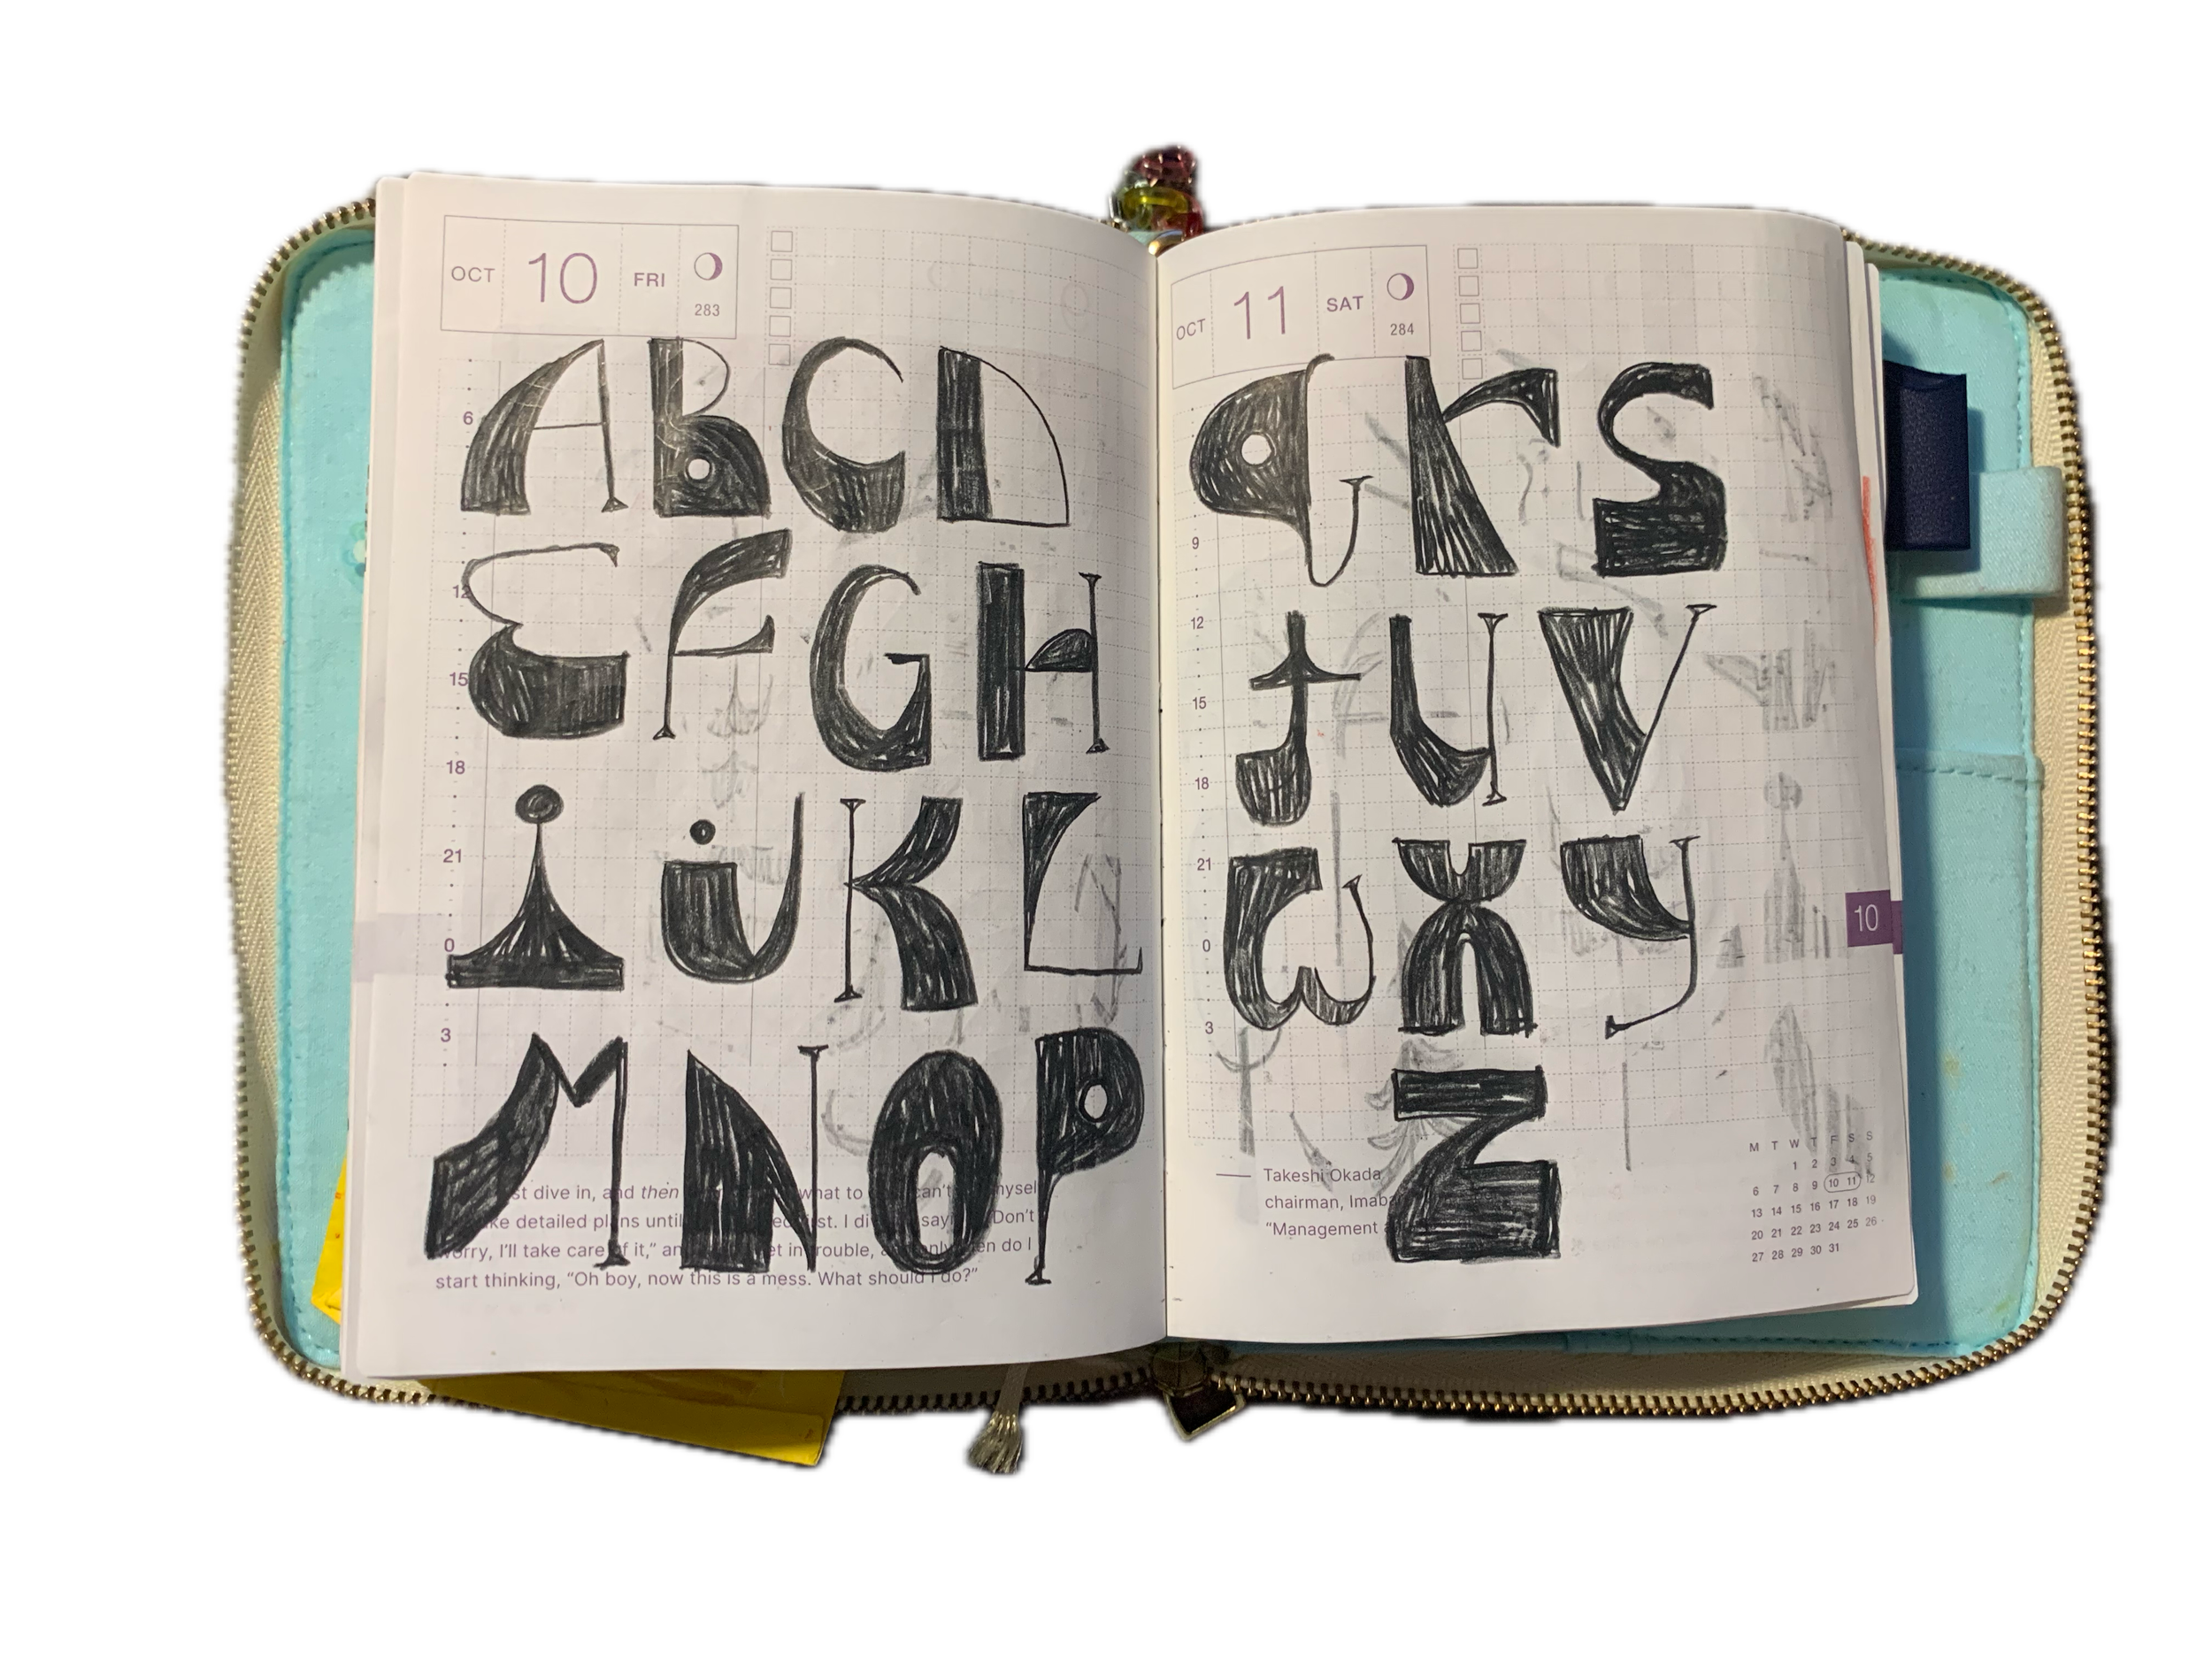 OCT 10 FRI
283
A B C D
6
E F G H
12
15
18
i j K L
21
0
M N O P
3
st dive in, and then what to can't mysel
ke detailed plans until st. I di say Don't
worry, I'll take care of it," an et in trouble, only then do I
start thinking, "Oh boy, now this is a mess. What should I do?"
OCT 11 SAT
284
q r S
9
t U V
12
15
18
W X y
21
0
3
Z
Takeshi Okada
chairman, Imaba
"Management
10
M T W T F S S
1 2 3 4 5
6 7 8 9 10 11 12
13 14 15 16 17 18 19
20 21 22 23 24 25 26
27 28 29 30 31